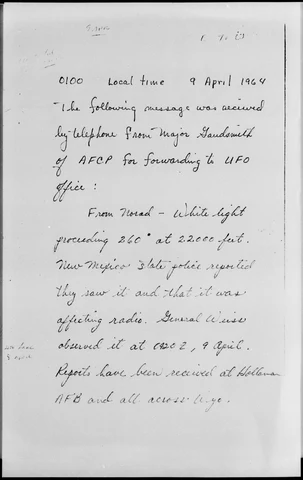 0100 Local time 9 April 1964
The following message was received
by telephone from Major
of AFCP for forwarding to UFO
office:
From Norad - White light
proceeding 260° at 22000 feet.
New Mexico State police reported
they saw it and that it was
affecting radio. General Weiss
observed it at 9 April.
Reports have been received at Holloman
AFB and all across